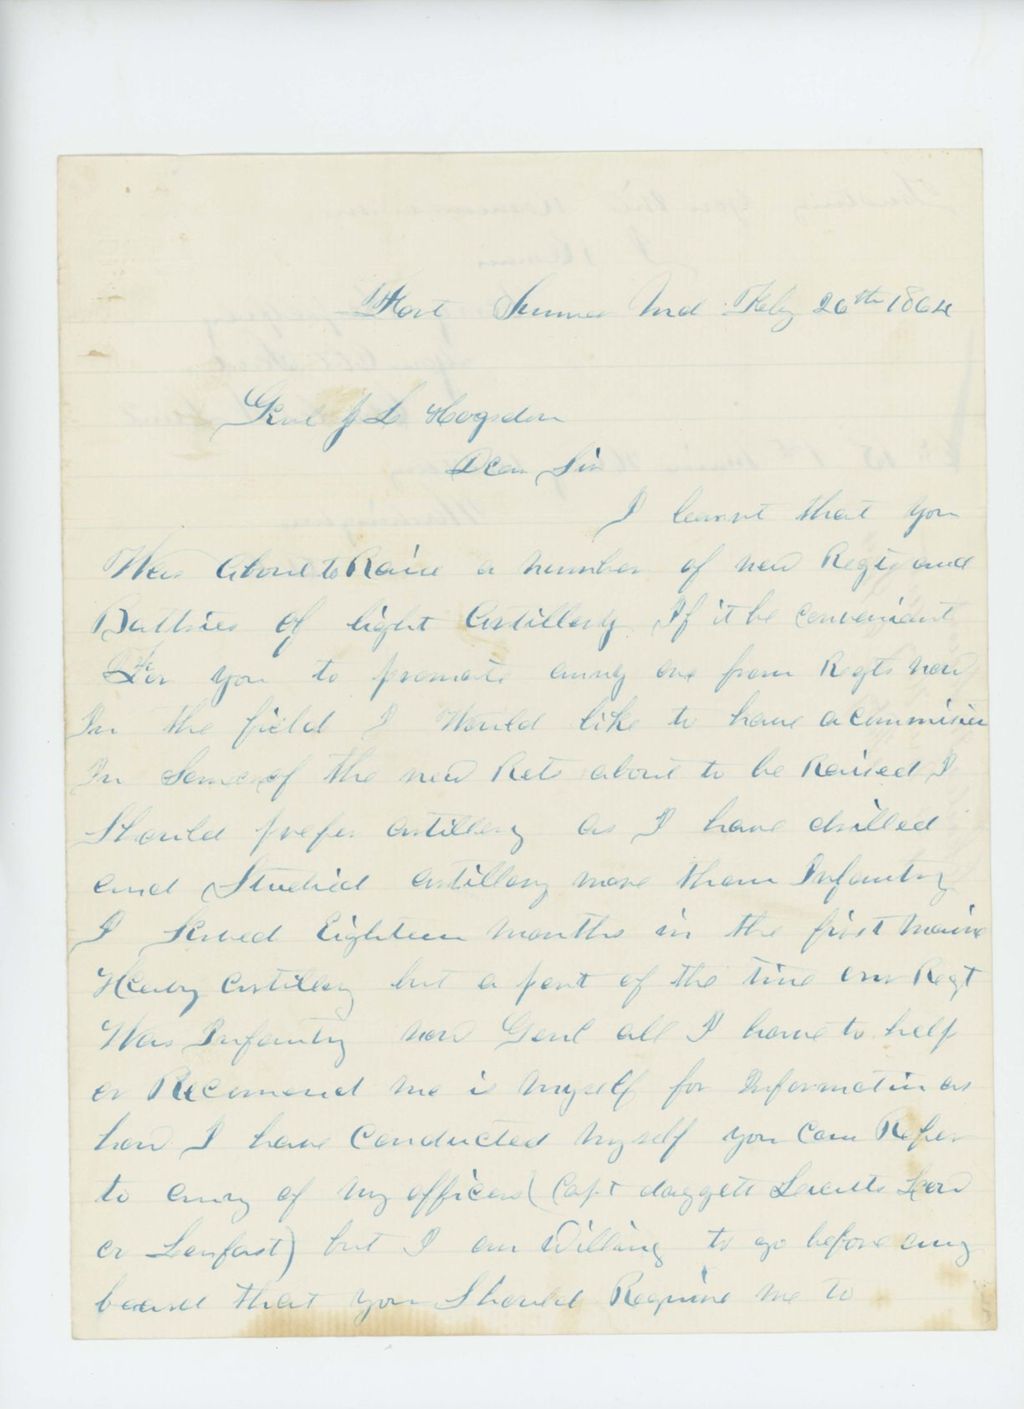 Fort Sumner Md Feby 26th 1864
Genl J L Hogsdon
Dear Sir
I learnt that you
Was about to Raise a number of new Regts and
Battries of light Artillery If it be convenient
For you to promote anny one from Regts now
In the field I Would like to have a Commision
In Some of the new Rets about to be Raised I
Should prefer artillery as I have drilled
and Studied artillery more than Infantry
I Served Eighteen months in the first Maine
Heavy Artillery but a part of the time our Regt
Was Infantry now Genl all I have to help
or Recomend me is Myself for Information as
how I have Conducted Myself you Can Refer
to anny of my officers (Capt daggett Lieuts Low
or Lenfast) but I am Willing to go before anny
board that you Should Require me to